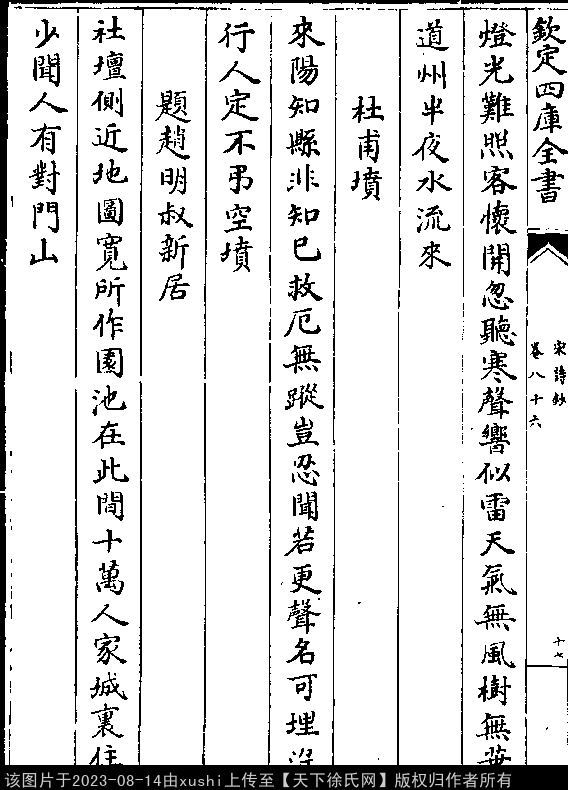 欽定四庫全書
宋詩鈔
卷八十六
十七
燈光難照客懷開忽聽寒聲響似雷天氣無風樹無葉
道州半夜水流來
杜甫墳
來陽知縣非知已救厄無蹤豈忍聞若更聲名可埋沒
行人定不弔空墳
題趙明叔新居
社壇側近地圖寬所作園池在此間十萬人家城裏住
少聞人有對門山
该图片于2023-08-14由xushi上传至【天下徐氏网】版权归作者所有